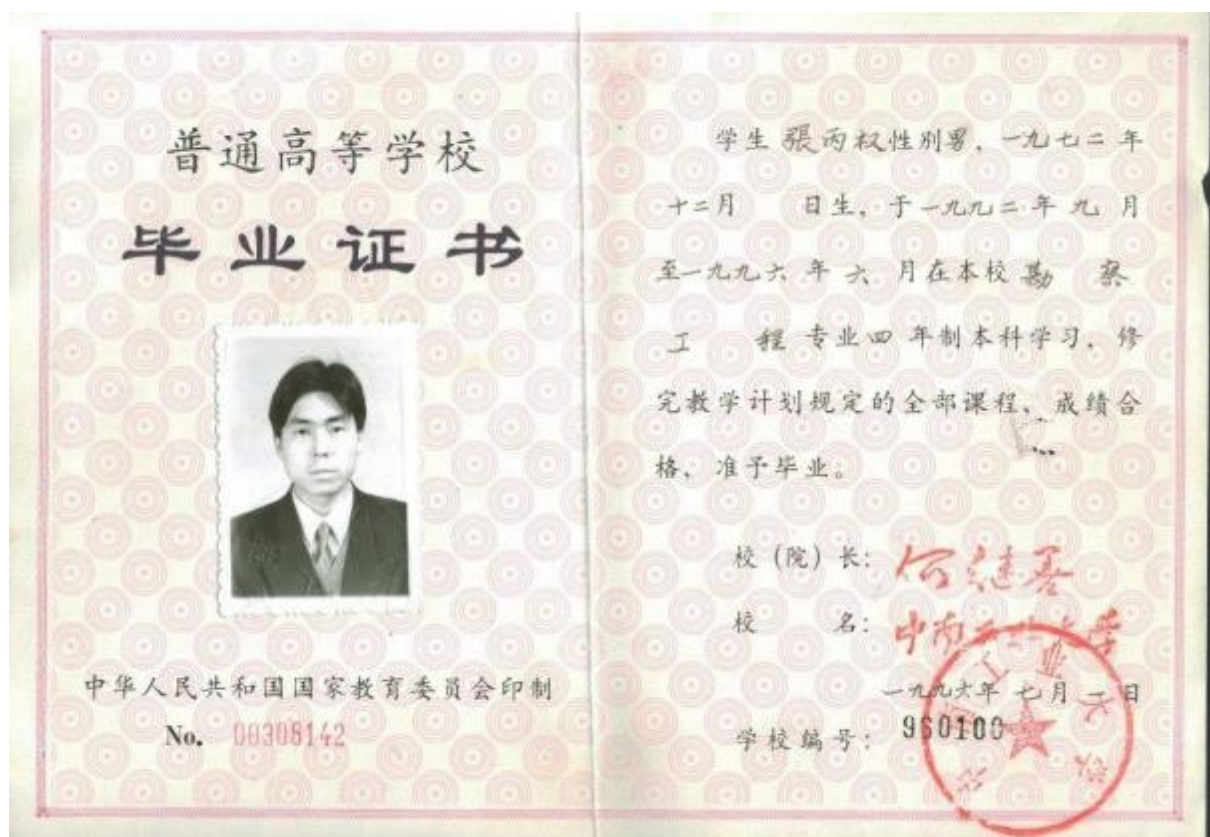 普通高等学校
毕业证书
中华人民共和国国家教育委员会印制
No. 00308142
学生張丙权性别男、一九七二年
十二月 日生、于一九九二年九月
至一九九六年六月在本校勘察
工程专业四年制本科学习、修
完教学计划规定的全部课程、成绩合
格、准予毕业。
校(院)长: 何继善
校名: 中南工业大学
一九九六年七月 日
学校编号: 960100
中南工业大学